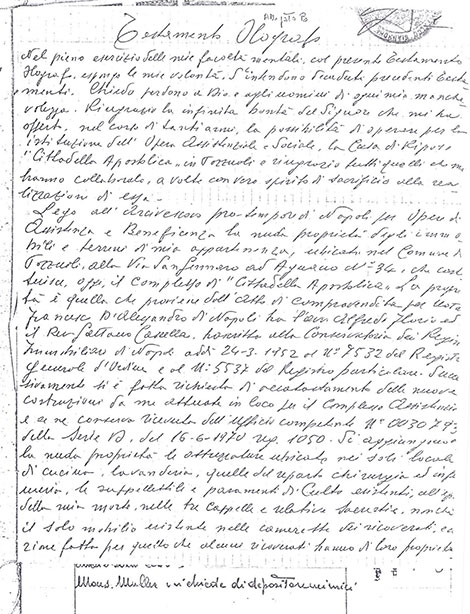 Testamento Olografo
Nel pieno esercizio delle mie facoltà mentali, col presente testamento
Olografo, espongo le mie volontà. S'intendono scaduti precedenti testa
menti. Chiedo perdono a Dio e agli uomini di ogni mia manche
volezza. Ringrazio la infinita bontà del Signore che mi ha
offerto, nel corso di tanti anni, la possibilità di operare per la
istituzione dell'Opera Assistenziale e Sociale, la Casa di Riposo
"Cittadella Apostolica" in Pozzuoli e ringrazio tutti quelli che mi
hanno collaborato, a volte con vero spirito di sacrificio alla rea
lizzazione di essa.
Lego all'Arcivescovo pro-tempore di Napoli, per Opere di
Assistenza e Beneficenza la nuda proprietà degli immo
bili e terreni di mia appartenenza, ubicati nel Comune di
Pozzuoli, alla Via San Gennaro ad Agnano N° che costi
tuisce, oggi, il complesso di "Cittadella Apostolica". La proprie
tà è quella che proviene dall'Atto di compravendita per Notar
Francesco D'Alessandro di Napoli tra Alfredo e
il Rev. Gaetano trascritto alla Conservatoria dei Registri
Immobiliari di Napoli addì 24-3-1952 al N° 7532 del Registro
generale d'Ordine e al N: 5537 del Registro particolare. Succes
sivamente si è fatta richiesta di accatastamento delle nuove
costruzioni da me attuate in loco per il Complesso Assistenziale
e se ne conserva ricevuta dell'Ufficio competente N° 003079
della Serie del 16-6-1970 1050. Si aggiungono
la nuda proprietà le attrezzature ubicate nei soli locali
di cucina, lavanderia, quelle del reparto chirurgia ed infer
meria, le suppellettili e paramenti di Culto esistenti, all'epoca
della mia morte, nelle tre cappelle e relative sacrestie, nonché
il solo mobilio esistente nelle camerette dei ricoverati, ecce
zione fatta per quello che alcuni ricoverati hanno di loro proprietà
Mons. Muller richiede di depositare